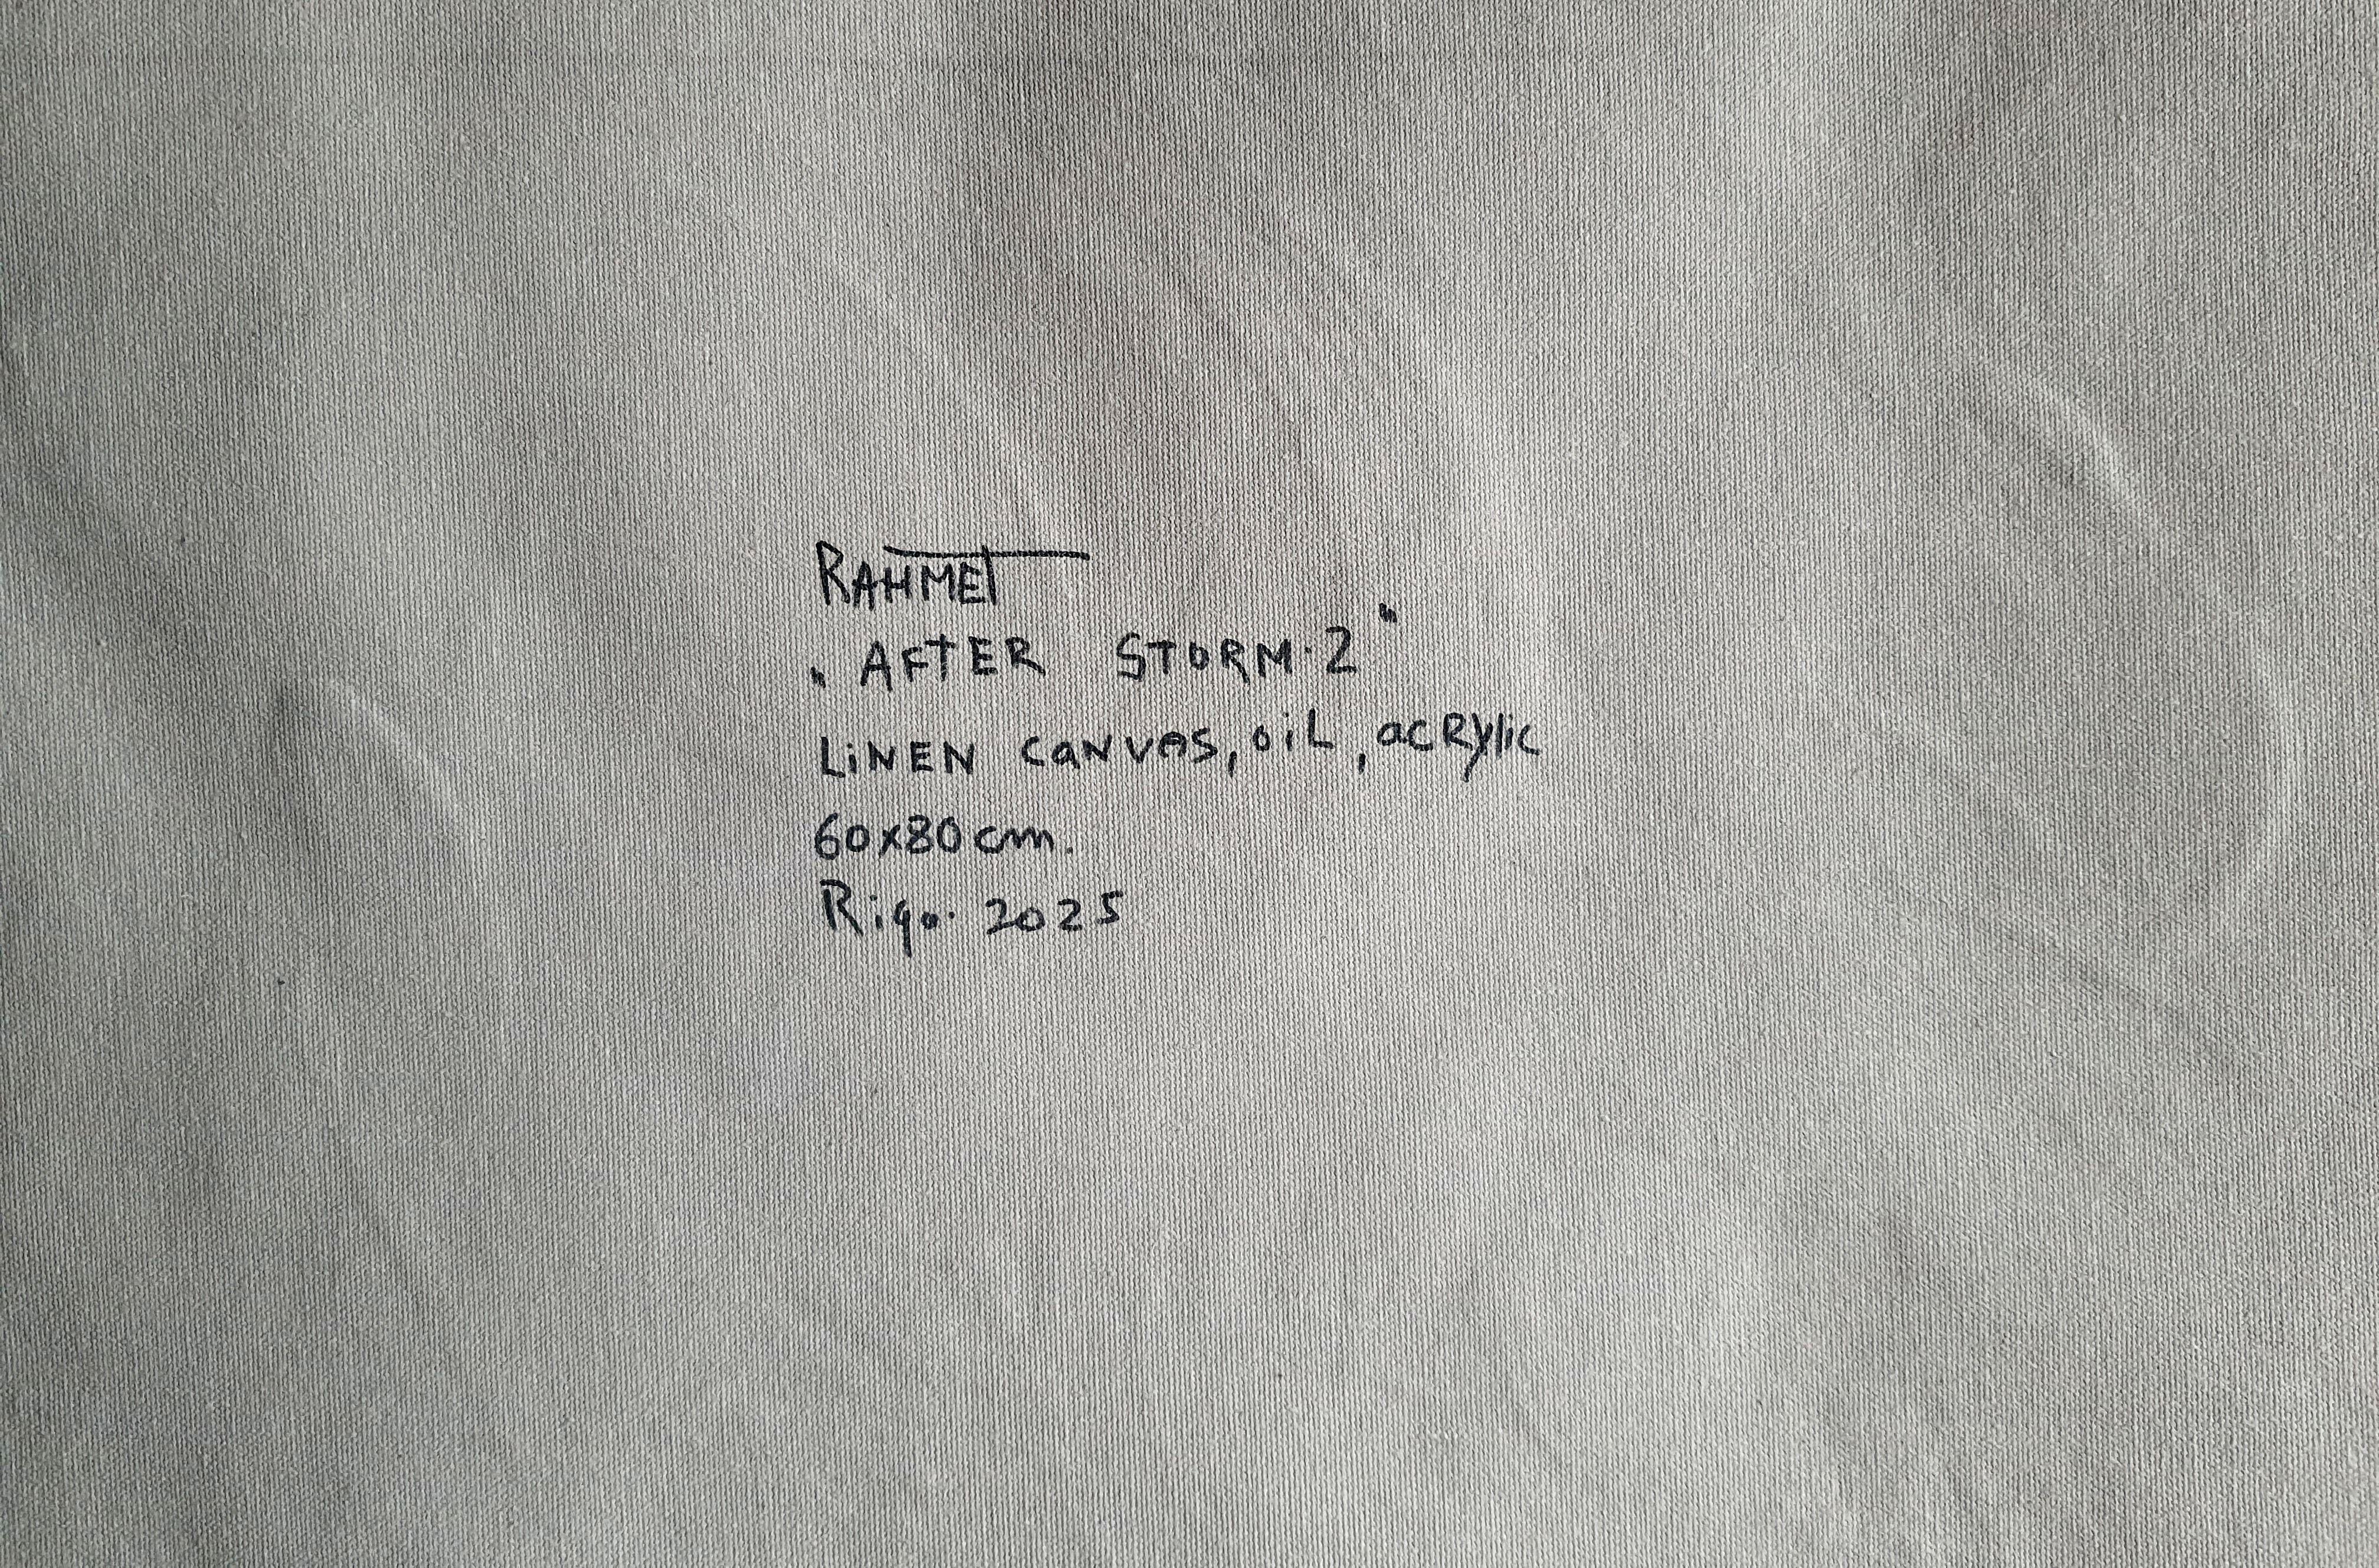 RAHMET
„AFTER STORM·2"
LiNEN CaNVAS, oiL, acRylic
60x80 cm.
Riga. 2025